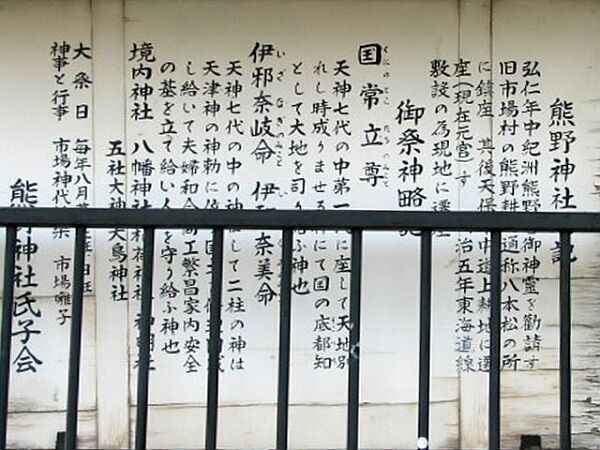 熊野神社 記
弘仁年中紀洲熊野 御神霊を勧請す
旧市場村の熊野耕 通称八本松の所
に鎮座 其後天保 中道上耕地に遷
座(現在元宮)す 治五年東海道線
敷設の為現地に遷座
御祭神略記
国常立尊
くにのとこたちのみこと
天神七代の中第一代に座して天地別
れし時成りませる神にて国の底都知
として大地を司り給ふ神也
伊邪奈岐命 伊邪奈美命
いざなぎのみこと
天神七代の中の神 して二柱の神は
天津神の神勅に依
し給いて夫婦和合商工繁昌家内安全
の基を立て給い人 を守り給ふ神也
境内神社 八幡神社 稲荷神社 神明社
五社大神 大鳥神社
大祭日 毎年八月
神事と行事 市場神代神楽 市場囃子
熊野神社氏子会